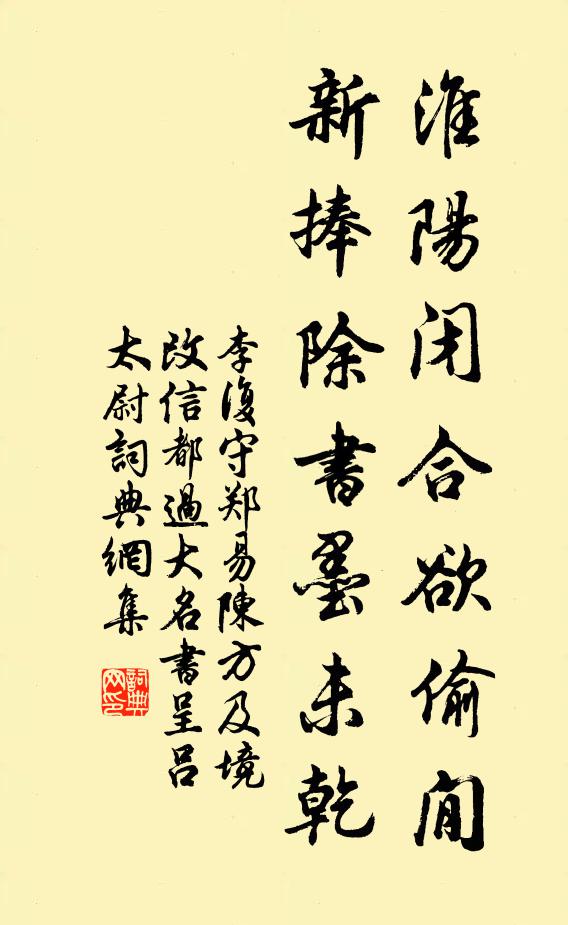 淮陽閉合欲偷閒
新捧除書墨未乾
李復守郑易陳方及境
改信都過大名書呈吕
太尉詞典網集
詞典
网印